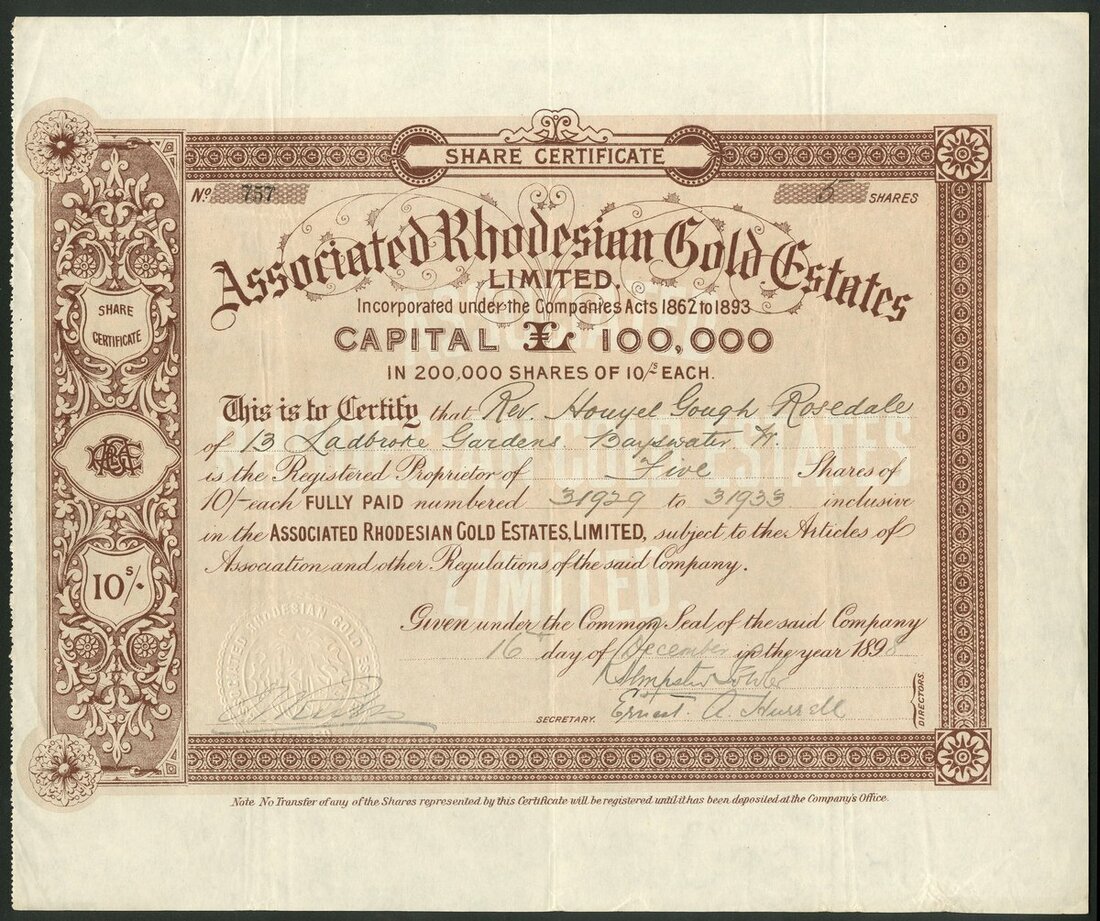 SHARE CERTIFICATE
No. 757
5 SHARES
Associated Rhodesian Gold Estates
LIMITED.
Incorporated under the Companies Acts 1862 to 1893
CAPITAL £ 100,000
IN 200,000 SHARES OF 10/s EACH.
This is to Certify that Rev. Honyel Gough Rosedale
of 13 Ladbroke Gardens Bayswater W.
is the Registered Proprietor of Five Shares of
10/- each FULLY PAID numbered 31929 to 31933 inclusive
in the ASSOCIATED RHODESIAN GOLD ESTATES, LIMITED, subject to the Articles of
Association and other Regulations of the said Company.
Given under the Common Seal of the said Company
16th day of December in the year 1898
Ernest A. Hurrell
SECRETARY.
DIRECTORS.
SHARE
CERTIFICATE
10s/-
ASSOCIATED RHODESIAN GOLD ESTATES
LIMITED.
ASSOCIATED RHODESIAN GOLD
Note No Transfer of any of the Shares represented by this Certificate will be registered until it has been deposited at the Company's Office.